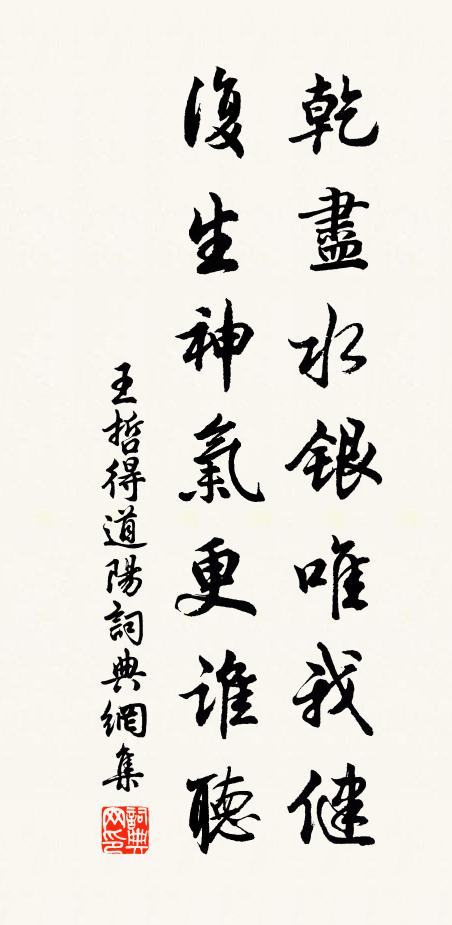 乾盡水銀唯我健
復生神氣更誰聽
王哲得道陽詞典網集
詞典
网印